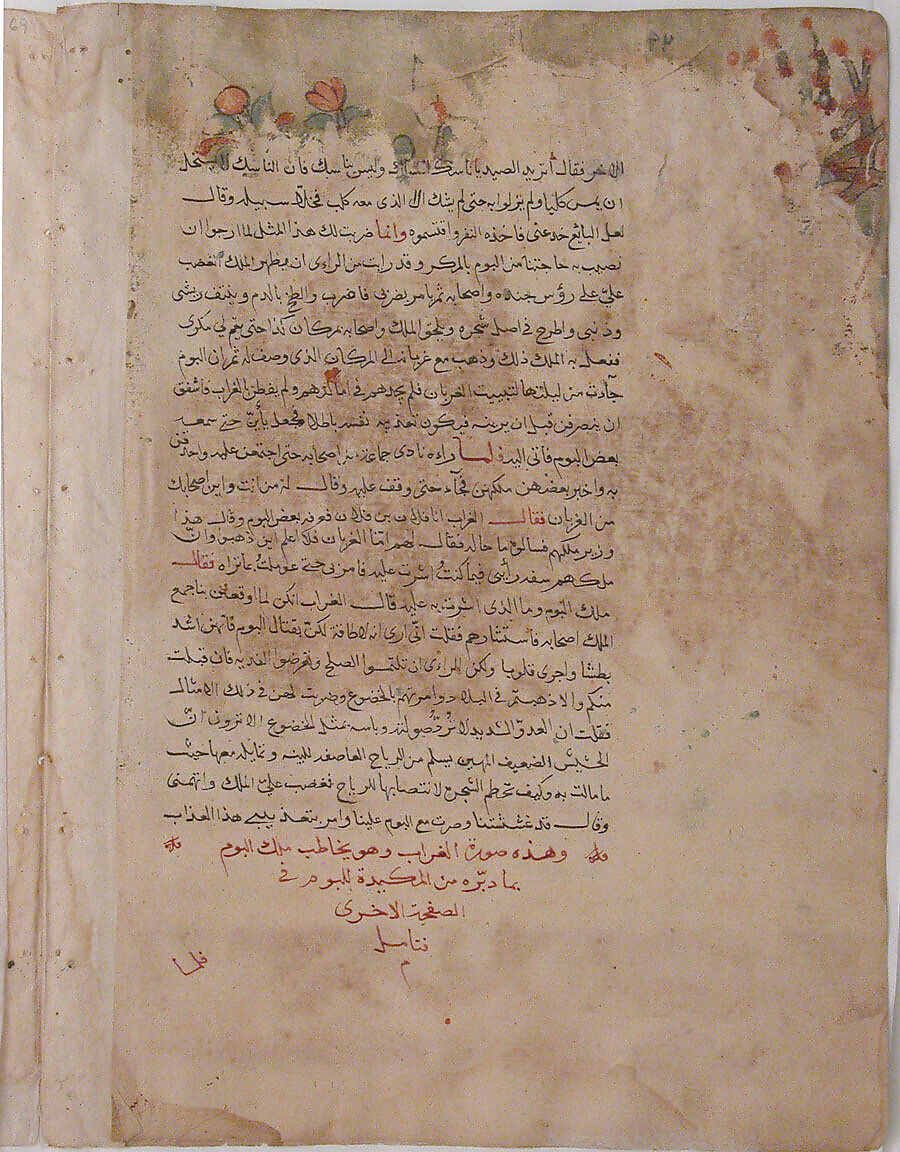 الاخر فقال اتريد الصيد يا ناسك وليس بناسك فان الناسك لا يستحل
ان يمس كلبا ولم يزلوا به حتى لم يشك ان الذى معه كلب فخلا سبيله وقال
لعل البائع خدعنى فاخذه النفر واقتسموه وانما ضربت لك هذا المثل لما ارجوا ان
نصيب به حاجتنا من البوم بالمكر وقد رايت من الراى ان يظهر الملك الغضب
علىّ على رؤس جنده واصحابه ثم يامر بضربى فاضرب والطخ بالدم وينتف ريشى
وذنبى واطرح فى اصل شجره ويلحق الملك واصحابه بمكان كذا حتى يتم لى مكرى
ففعل به الملك ذلك وذهب مع غربانه الى المكان الذى وصف له ثم ان البوم
جآت من ليلتها لتبييت الغربان فلم يجدهم فى اماكنهم ولم يفطن الغراب فاشفق
ان ينصرفن قبل ان يرينه فيكون تعذيبه نفسه باطلا فجعل يأنّ حتى سمعه
بعض البوم فاتى اليه فلما راءه نادى جماعة من اصحابه حتى اجتمعن عليه واحدقن
به واخبر بعضهن ملكهن فجآء حتى وقف عليه وقال له من انت واين اصحابك
من الغربان فقال الغراب انا فلان بن فلان فعرفه بعض البوم وقال هذا
وزير ملكهم فسالوه ما حاله فقال لهم اما الغربان فلا اعلم اين ذهبوا وانّ
ملكهم سفه رأيى فيما كنتُ اشرت عليه فامر بى حتى عوملتُ بما تراه فقال
ملك البوم وما الذى اشرت به عليه قال الغراب انكن لما اوقعتن بنا جمع
الملك اصحابه فاستشارهم فقلت انّى ارى انه لا طاقة لكن بقتال البوم فانهن اشد
بطشا واجرى قلوبا ولكن الراءى ان تلتمسوا الصلح وتعرضوا الفديه فان قبلت
منكم والا ذهبتم فى البلاد وامرتهم بالخضوع وضربت لهن فى ذلك الامثال
فقلت ان العدو الشديد لا تردّ صولته وباسه بمثل الخضوع الا ترون انّ
الحشيش الضعيف المهين يسلم من الرياح العاصفه للينه وتمايله معها حيث
ما مالت به وكيف تحطم الشجره لانتصابها للرياح فغضب علىّ الملك واتهمنى
وقال قد غششتنا وصرت مع البوم علينا وامر بتعذيبى هذا العذاب
وهذه صورة الغراب وهو يخاطب ملك البوم
بما دبّره من المكيدة للبوم فى
الصفحة الاخرى
فتامل
م
فلما